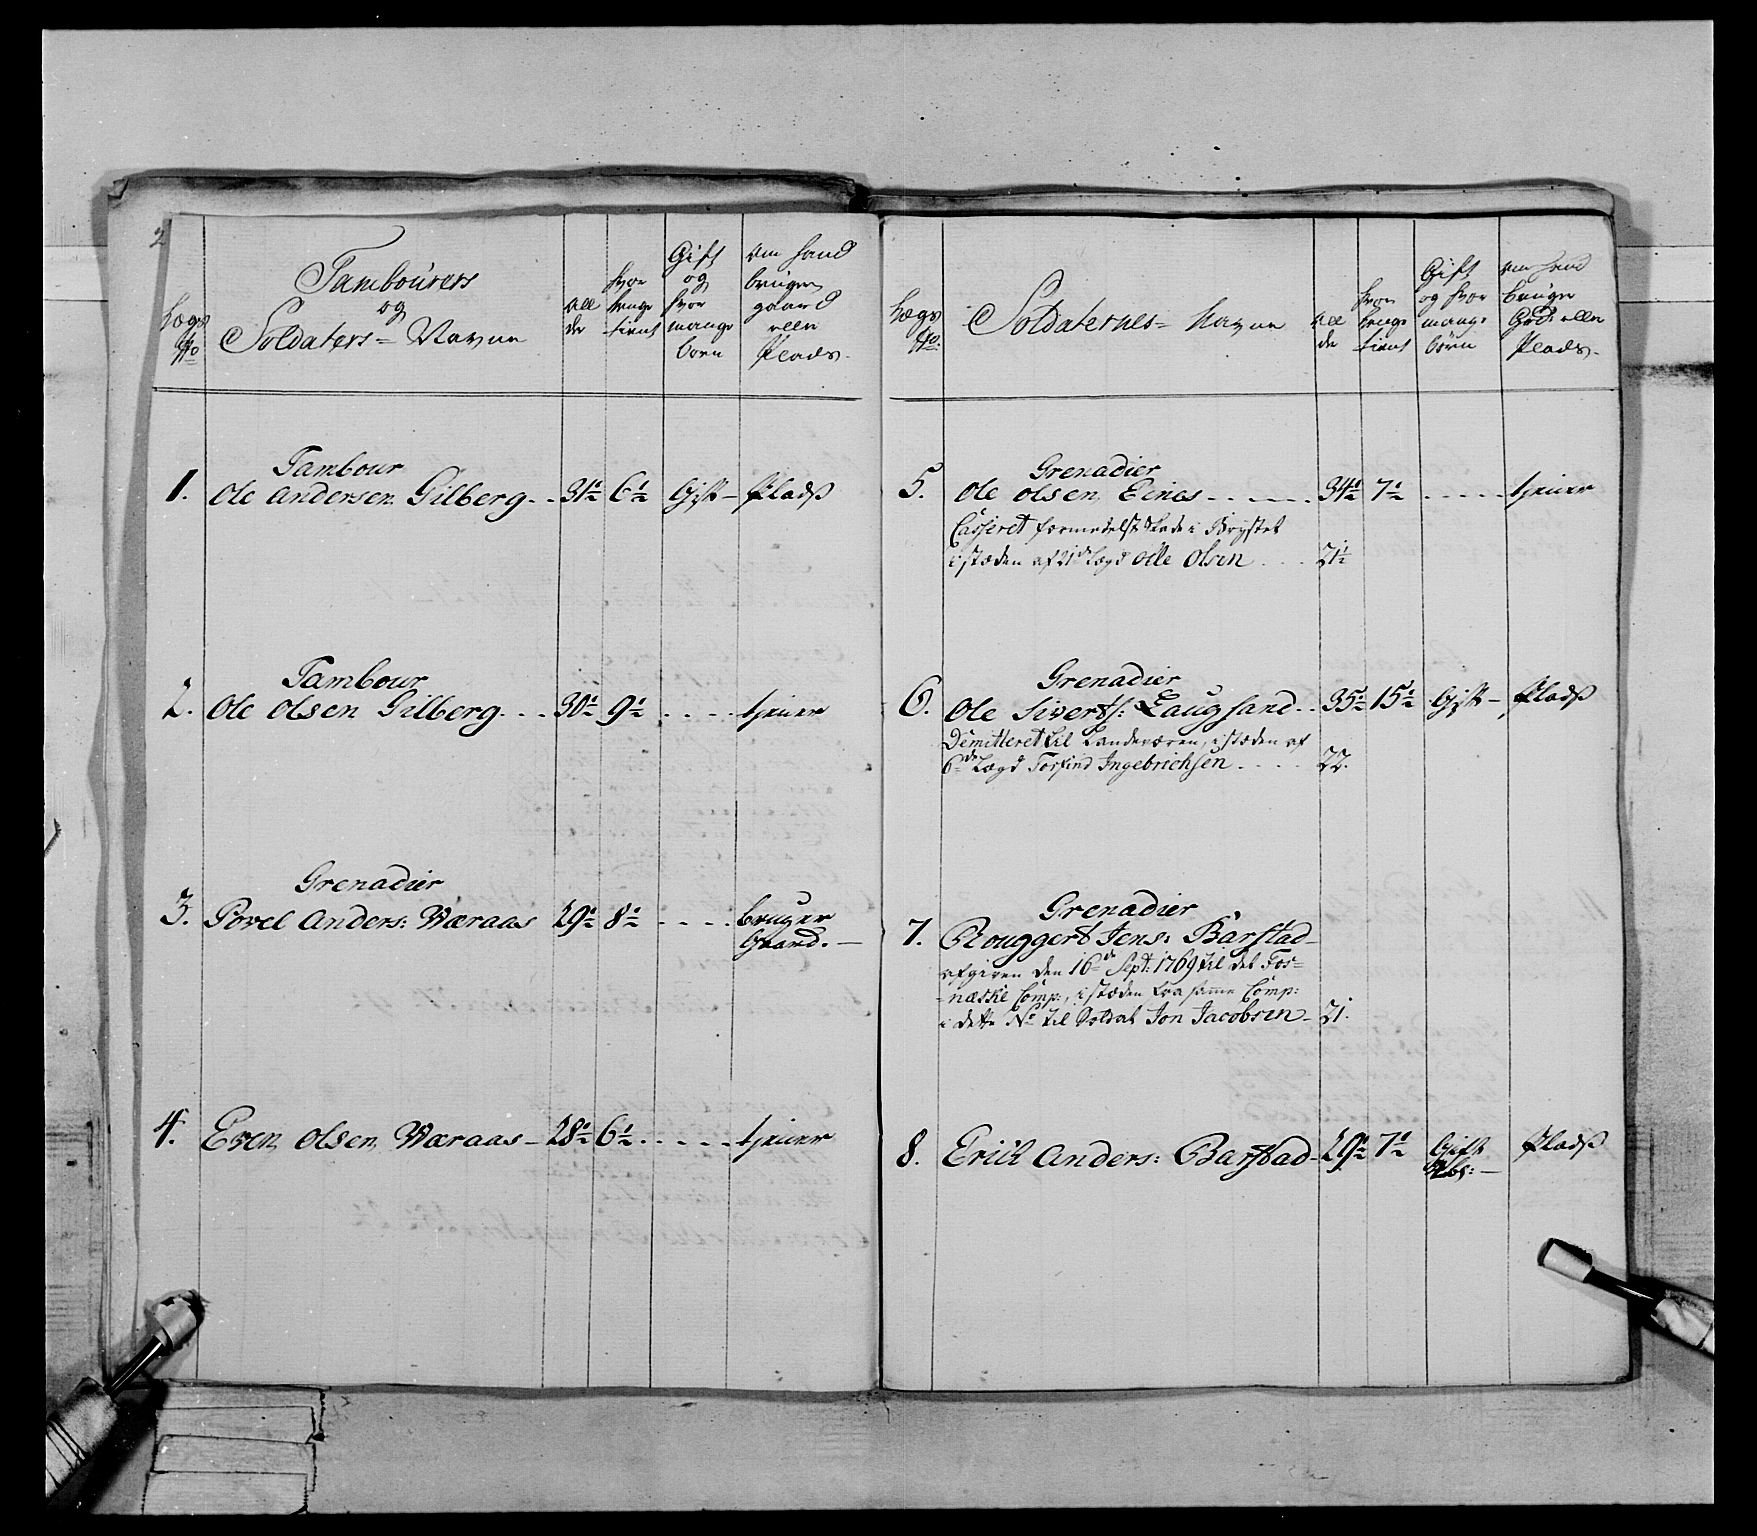 2
Lægs No
Tambourers
og
Soldaters = Navne
all
der
hvor
lenge
tient
Gift
og
hvor
mange
børn
om hand
bruger
gaard
eller
Plads.
1.
Tambour
Ole Andersen Gilberg . . 31½ 6½ Gift - Pladß
2.
Tambour
Ole Olsen Gilberg . . . 30½ 9½ . . . . tjener
3.
Grenadier
Povel Anders: Wæraas 29½ 8½ - - - . bruger
Gaard. -
4. Even Olsen Wæraas - 28½ 6½ . . . . . tjener
Lægs No:
Soldaternes = Navne
all
de
hvor
lenge
tient
Gift
og hvor
mange
børn
om hand
bruger
Gad: eller
Plads -
5.
Grenadier
Ole Olsen Eines . . - . . . 34½ 7½ . - - - . tjener
Casseret formedelst skade i Brystet
i stæden af 21de Lægd Olle Olsen . . . 21½
6.
Grenadier
Ole Siverts: Laugsand . . 35½ 15½ Gift - Pladß
Demitteret til Landeværen, i stæden af
6de Lægd Torfind Ingebrichsen . . . . 22.
7.
Grenadier
Rouggert Jens: Barstad -
afgiven den 16de Sept: 1769 til det For=
=næske Comp:, i stæden fra samme Comp:
i dette No til Soldat Jon Jacobsen - 21.
8. Erich Anders: Barstad - 29½ 7½ Gift Pladß